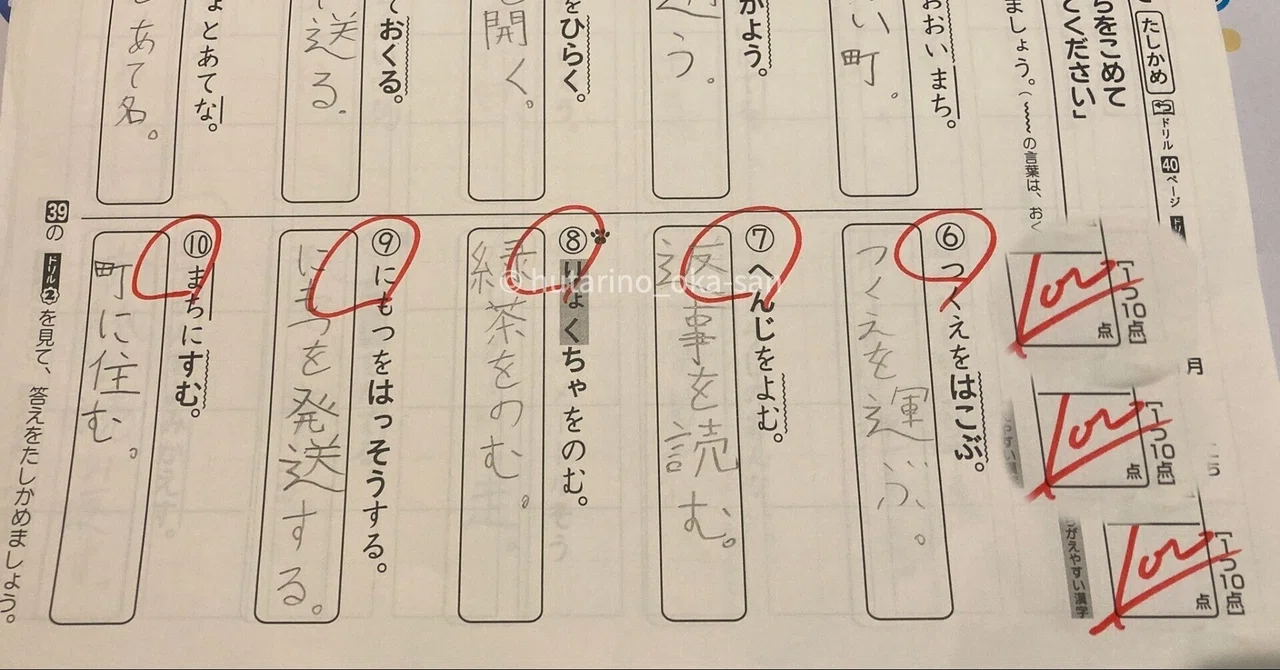 ちをこめて
てください」
たしかめ
ドリル 40 ページ
ましょう。(〰〰の言葉は、おく
おおいまち。
い町。
がよう。
う。
をひらく。
開く。
ておくる。
送る。
とあてな。
あて名。
[1つ10点]
点
月
[1つ10点]
点
[1つ10点]
点
がえやすい漢字
⑥ つくえをはこぶ。
つくえを運ぶ。
⑦ へんじをよむ。
返事を読む。
⑧ りょくちゃをのむ。
緑茶をのむ。
⑨ にもつをはっそうする。
にもつを発送する。
⑩ まちにすむ。
町に住む。
39の ドリル② を見て、答えをたしかめましょう。
© hutarino_oka-san